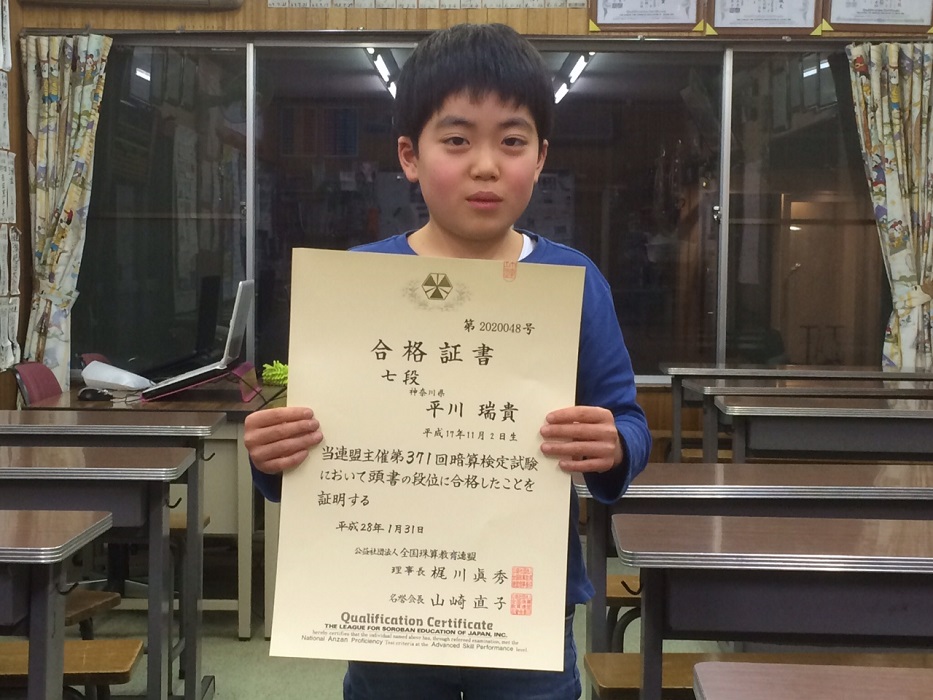 第2020048号
合格証書
七段
神奈川県
平川 瑞貴
平成17年11月2日生
当連盟主催第371回暗算検定試験
において頭書の段位に合格したことを
証明する
平成28年1月31日
公益社団法人 全国珠算教育連盟
理事長 梶川眞秀
名誉会長 山崎直子
Qualification Certificate
THE LEAGUE FOR SOROBAN EDUCATION OF JAPAN, INC.
hereby certifies that the individual named above has, through refereed examination, met the
National Anzan Proficiency Test criteria at the Advanced Skill Performance level.